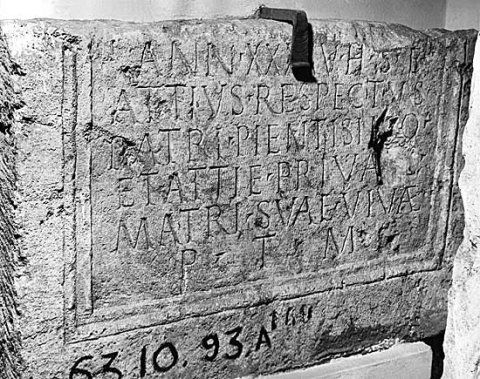 ANN·XXX V·H·S·E
ATTIVS·RESPECTVS
PATRI·PIENTISIMO
ET·ATTIE·PRIVA
MATRI·SVAE·VIVAE
P · T · M ·
63.10.93.A